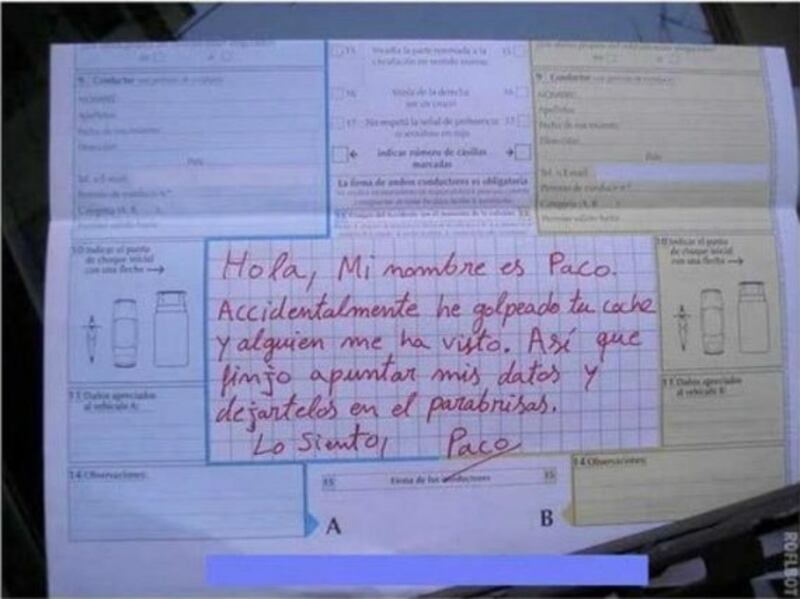 9 Conductor
9 Conductor
15 Invadía la parte reservada a la 15
circulación en sentido inverso
16 Venía de la derecha 16
17 No respetó la señal de preferencia 17
NOMBRE:
Apellidos:
Fecha de nacimiento:
Dirección:
País:
Tel. o E-mail:
indicar número de casillas
marcadas
La firma de ambos conductores es obligatoria
10 Indicar el punto
de choque inicial
con una flecha
10 Indicar el punto
de choque inicial
con una flecha
Hola, Mi nombre es Paco.
Accidentalmente he golpeado tu coche
y alguien me ha visto. Así que
finjo apuntar mis datos y
dejártelos en el parabrisas.
Lo Siento, Paco
11 Daños apreciados
al vehículo A:
11 Daños apreciados
al vehículo B:
14 Observaciones:
14 Observaciones:
15 Firma de los conductores 15
A
B
ROFLBOT